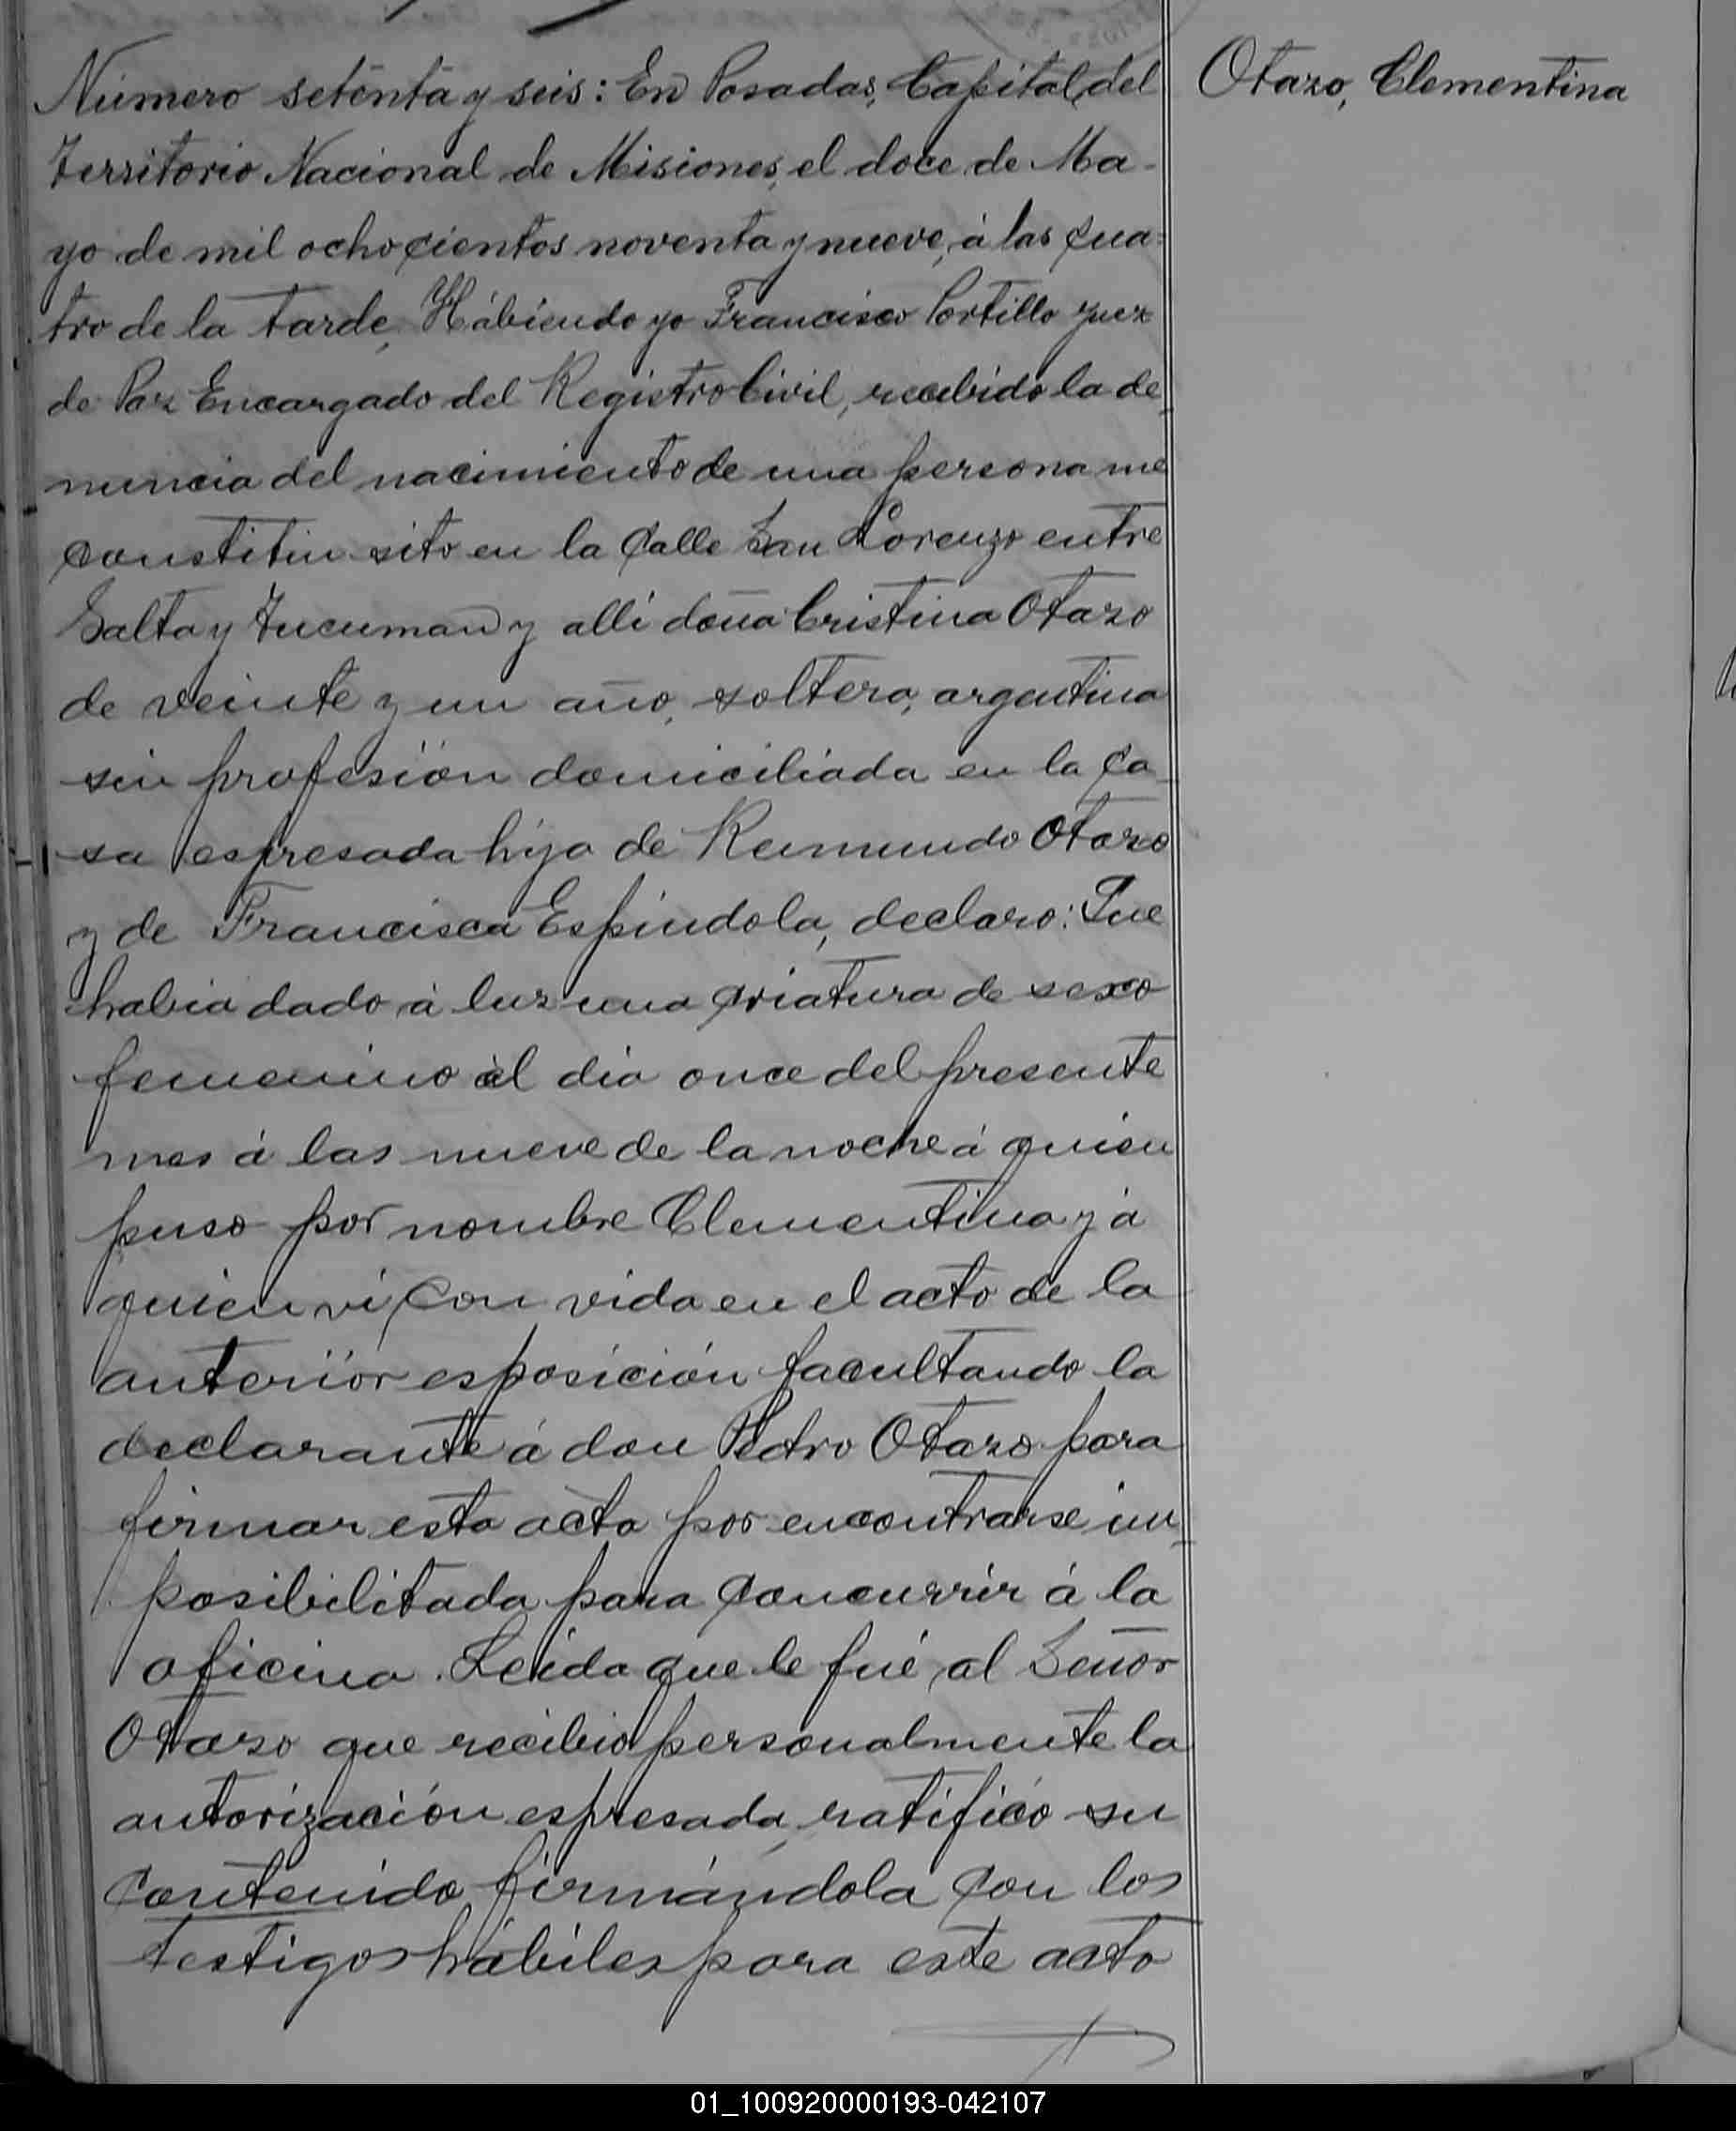 Número setenta y seis: En Posadas, Capital del
Territorio Nacional de Misiones, el doce de Ma-
yo de mil ochocientos noventa y nueve, à las cua=
tro de la tarde, Hábiendo yo Francisco Portillo Juez
de Paz Encargado del Registro Civil, recebido la de-
nuncia del nacimiento de una persona me
constitiu sito en la Calle San Lorenzo entre
Salta y Tucuman y alli doña Cristina Otazo
de veinte y un año, soltera, argentina
sin profesión domiciliada en la ca-
sa espresada hija de Reimundo Otazo
y de Francisca Espíndola, declaro: Que
habia dado à luz una criatura de sexo
femenino el dia once del presente
mes à las nueve de la noche á quien
puso por nombre Clementina y á
quien ví con vida en el acto de la
anterior esposición facultando la
declarante á don Pedro Otazo para
firmar esta acta por encontrarse im-
posibilitada para concurrir á la
oficina. Leida que le fué al Señor
Otazo que recibió personalmente la
autorización espresada, ratificó su
contenido firmándola con los
testigos hábiles para este acto
Otazo, Clementina
01_100920000193-042107